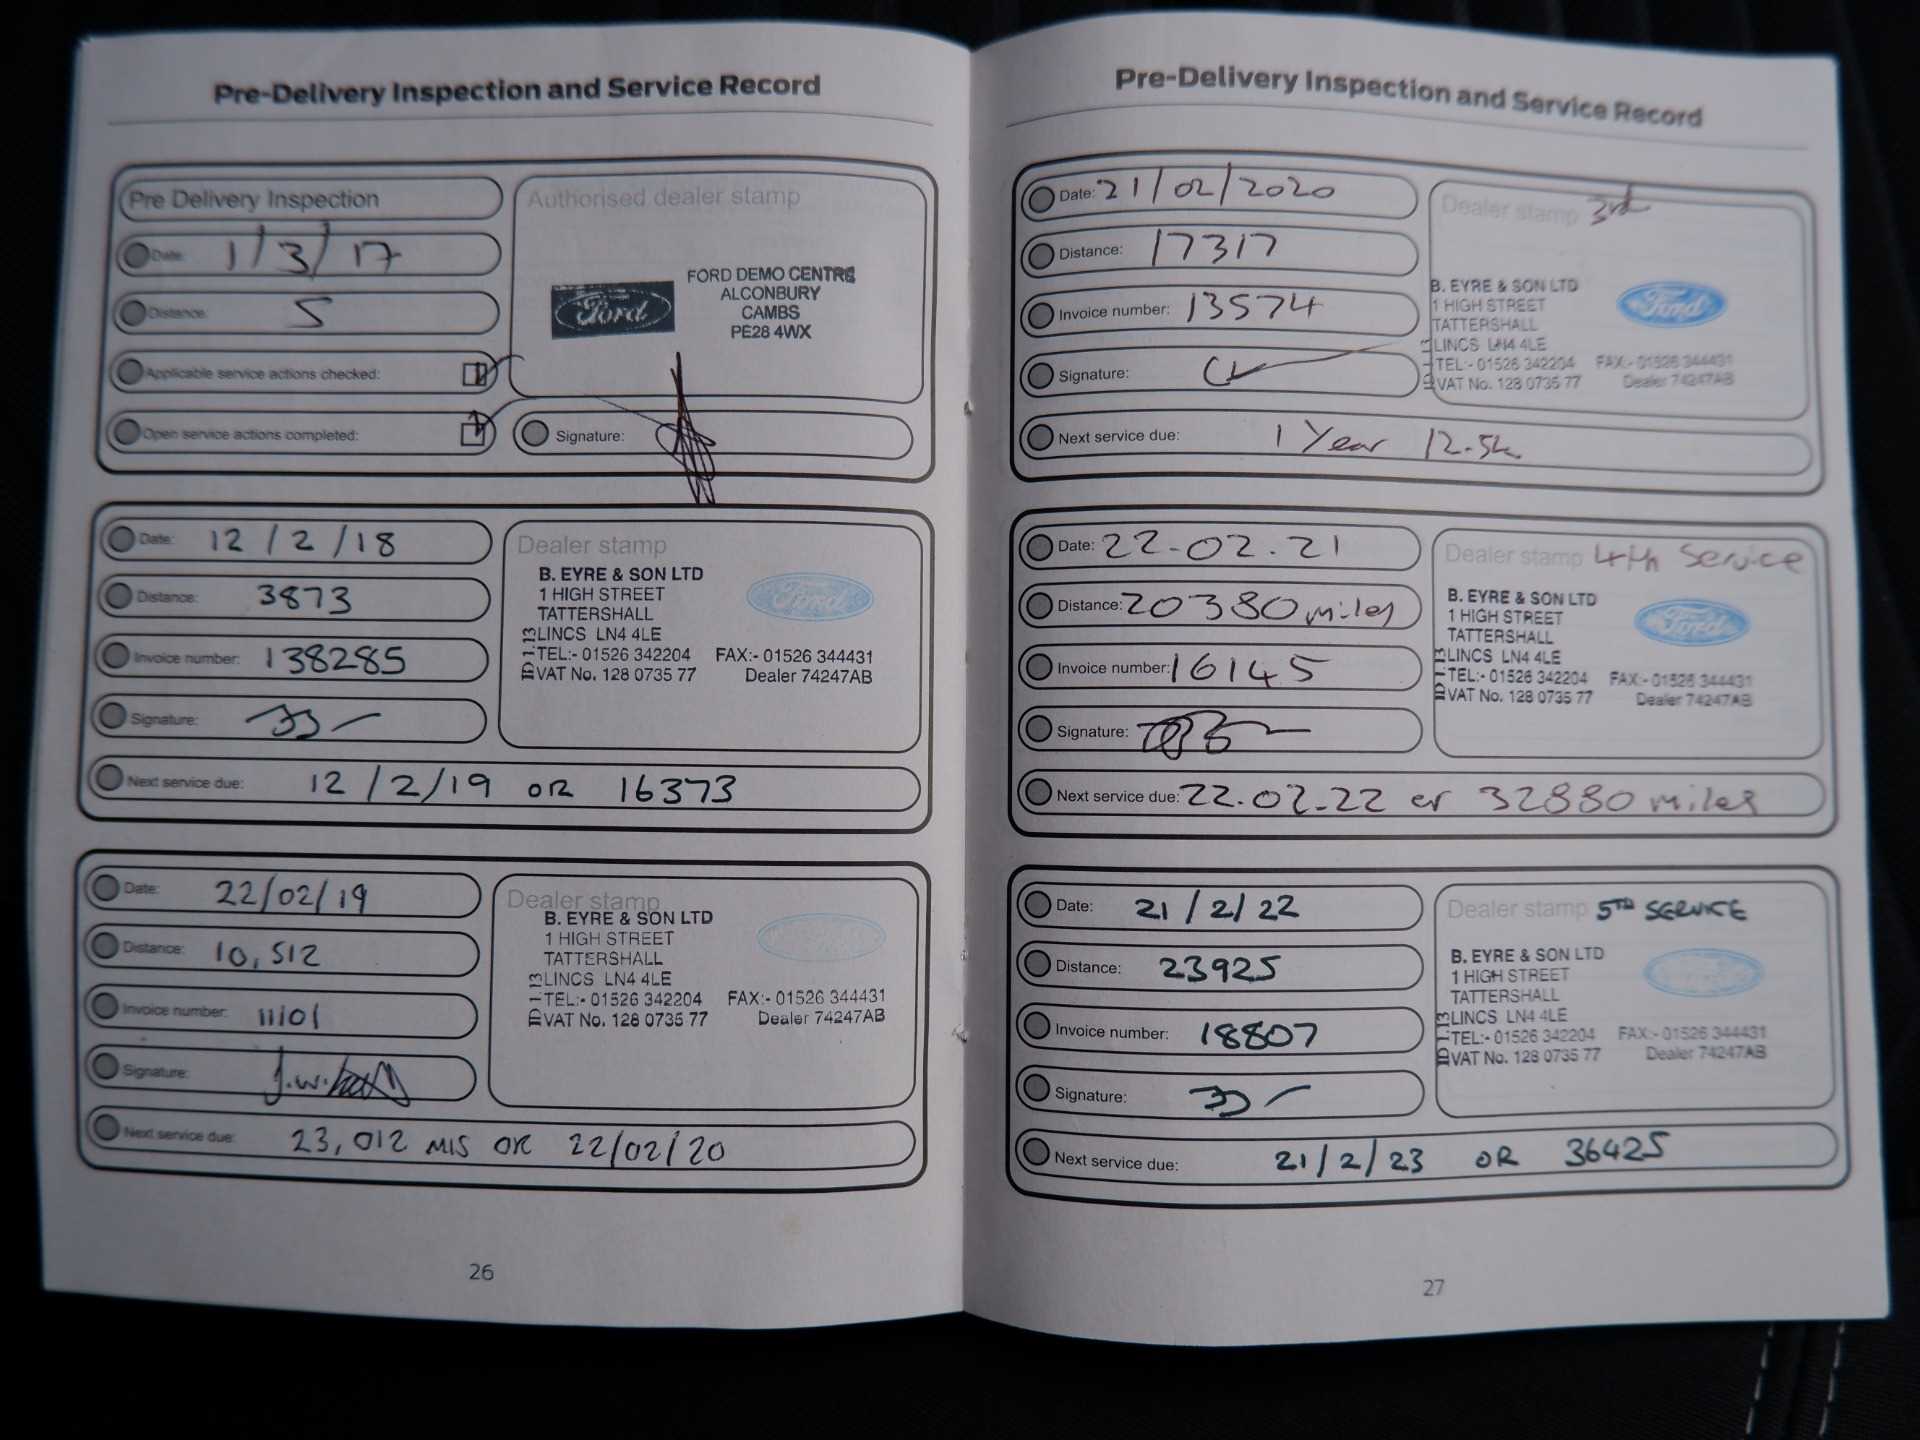 Pre-Delivery Inspection and Service Record
Pre Delivery Inspection
Date: 1/3/17
Distance: 5
Applicable service actions checked:
Open service actions completed:
Authorised dealer stamp
Ford
FORD DEMO CENTRE
ALCONBURY
CAMBS
PE28 4WX
Signature:
Date: 12/2/18
Distance: 3873
Invoice number: 138285
Signature:
Next service due: 12/2/19 OR 16373
Dealer stamp
B. EYRE & SON LTD
1 HIGH STREET
TATTERSHALL
LINCS LN4 4LE
TEL:- 01526 342204 FAX:- 01526 344431
VAT No. 128 0735 77 Dealer 74247AB
Ford
Date: 22/02/19
Distance: 10,512
Invoice number: 11101
Signature:
Next service due: 23,012 MIS OR 22/02/20
Dealer stamp
B. EYRE & SON LTD
1 HIGH STREET
TATTERSHALL
LINCS LN4 4LE
TEL:- 01526 342204 FAX:- 01526 344431
VAT No. 128 0735 77 Dealer 74247AB
26
Pre-Delivery Inspection and Service Record
Date: 21/02/2020
Distance: 17317
Invoice number: 13574
Signature:
Next service due: 1 Year 12.5k
Dealer stamp 3rd
B. EYRE & SON LTD
1 HIGH STREET
TATTERSHALL
LINCS LN4 4LE
TEL:- 01526 342204 FAX:- 01526 344431
VAT No. 128 0735 77 Dealer 74247AB
Ford
Date: 22.02.21
Distance: 20380 miles
Invoice number: 16145
Signature:
Next service due: 22.02.22 or 32880 miles
Dealer stamp 4th Service
B. EYRE & SON LTD
1 HIGH STREET
TATTERSHALL
LINCS LN4 4LE
TEL:- 01526 342204 FAX:- 01526 344431
VAT No. 128 0735 77 Dealer 74247AB
Ford
Date: 21/2/22
Distance: 23925
Invoice number: 18807
Signature:
Next service due: 21/2/23 OR 36425
Dealer stamp 5TH SERVICE
B. EYRE & SON LTD
1 HIGH STREET
TATTERSHALL
LINCS LN4 4LE
TEL:- 01526 342204 FAX:- 01526 344431
VAT No. 128 0735 77 Dealer 74247AB
27